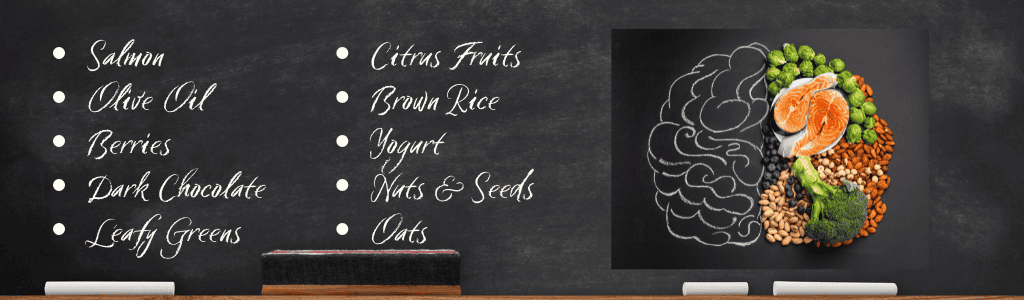 Salmon
Olive Oil
Berries
Dark Chocolate
Leafy Greens
Citrus Fruits
Brown Rice
Yogurt
Nuts & Seeds
Oats